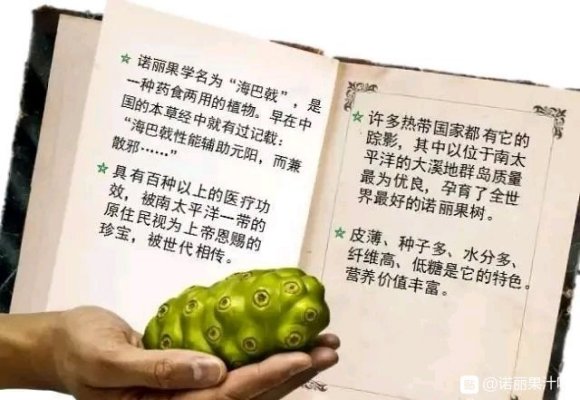 诺丽果学名为“海巴戟”，是
一种药食两用的植物。早在中
国的本草经中就有过记载：
“海巴戟性能辅助元阳，而兼
散邪……”
具有百种以上的医疗功
效，被南太平洋一带的
原住民视为上帝恩赐的
珍宝，被世代相传。
许多热带国家都有它的
踪影，其中以位于南太
平洋的大溪地群岛质量
最为优良，孕育了全世
界最好的诺丽果树。
皮薄、种子多、水分多、
纤维高、低糖是它的特色。
营养价值丰富。
@诺丽果汁